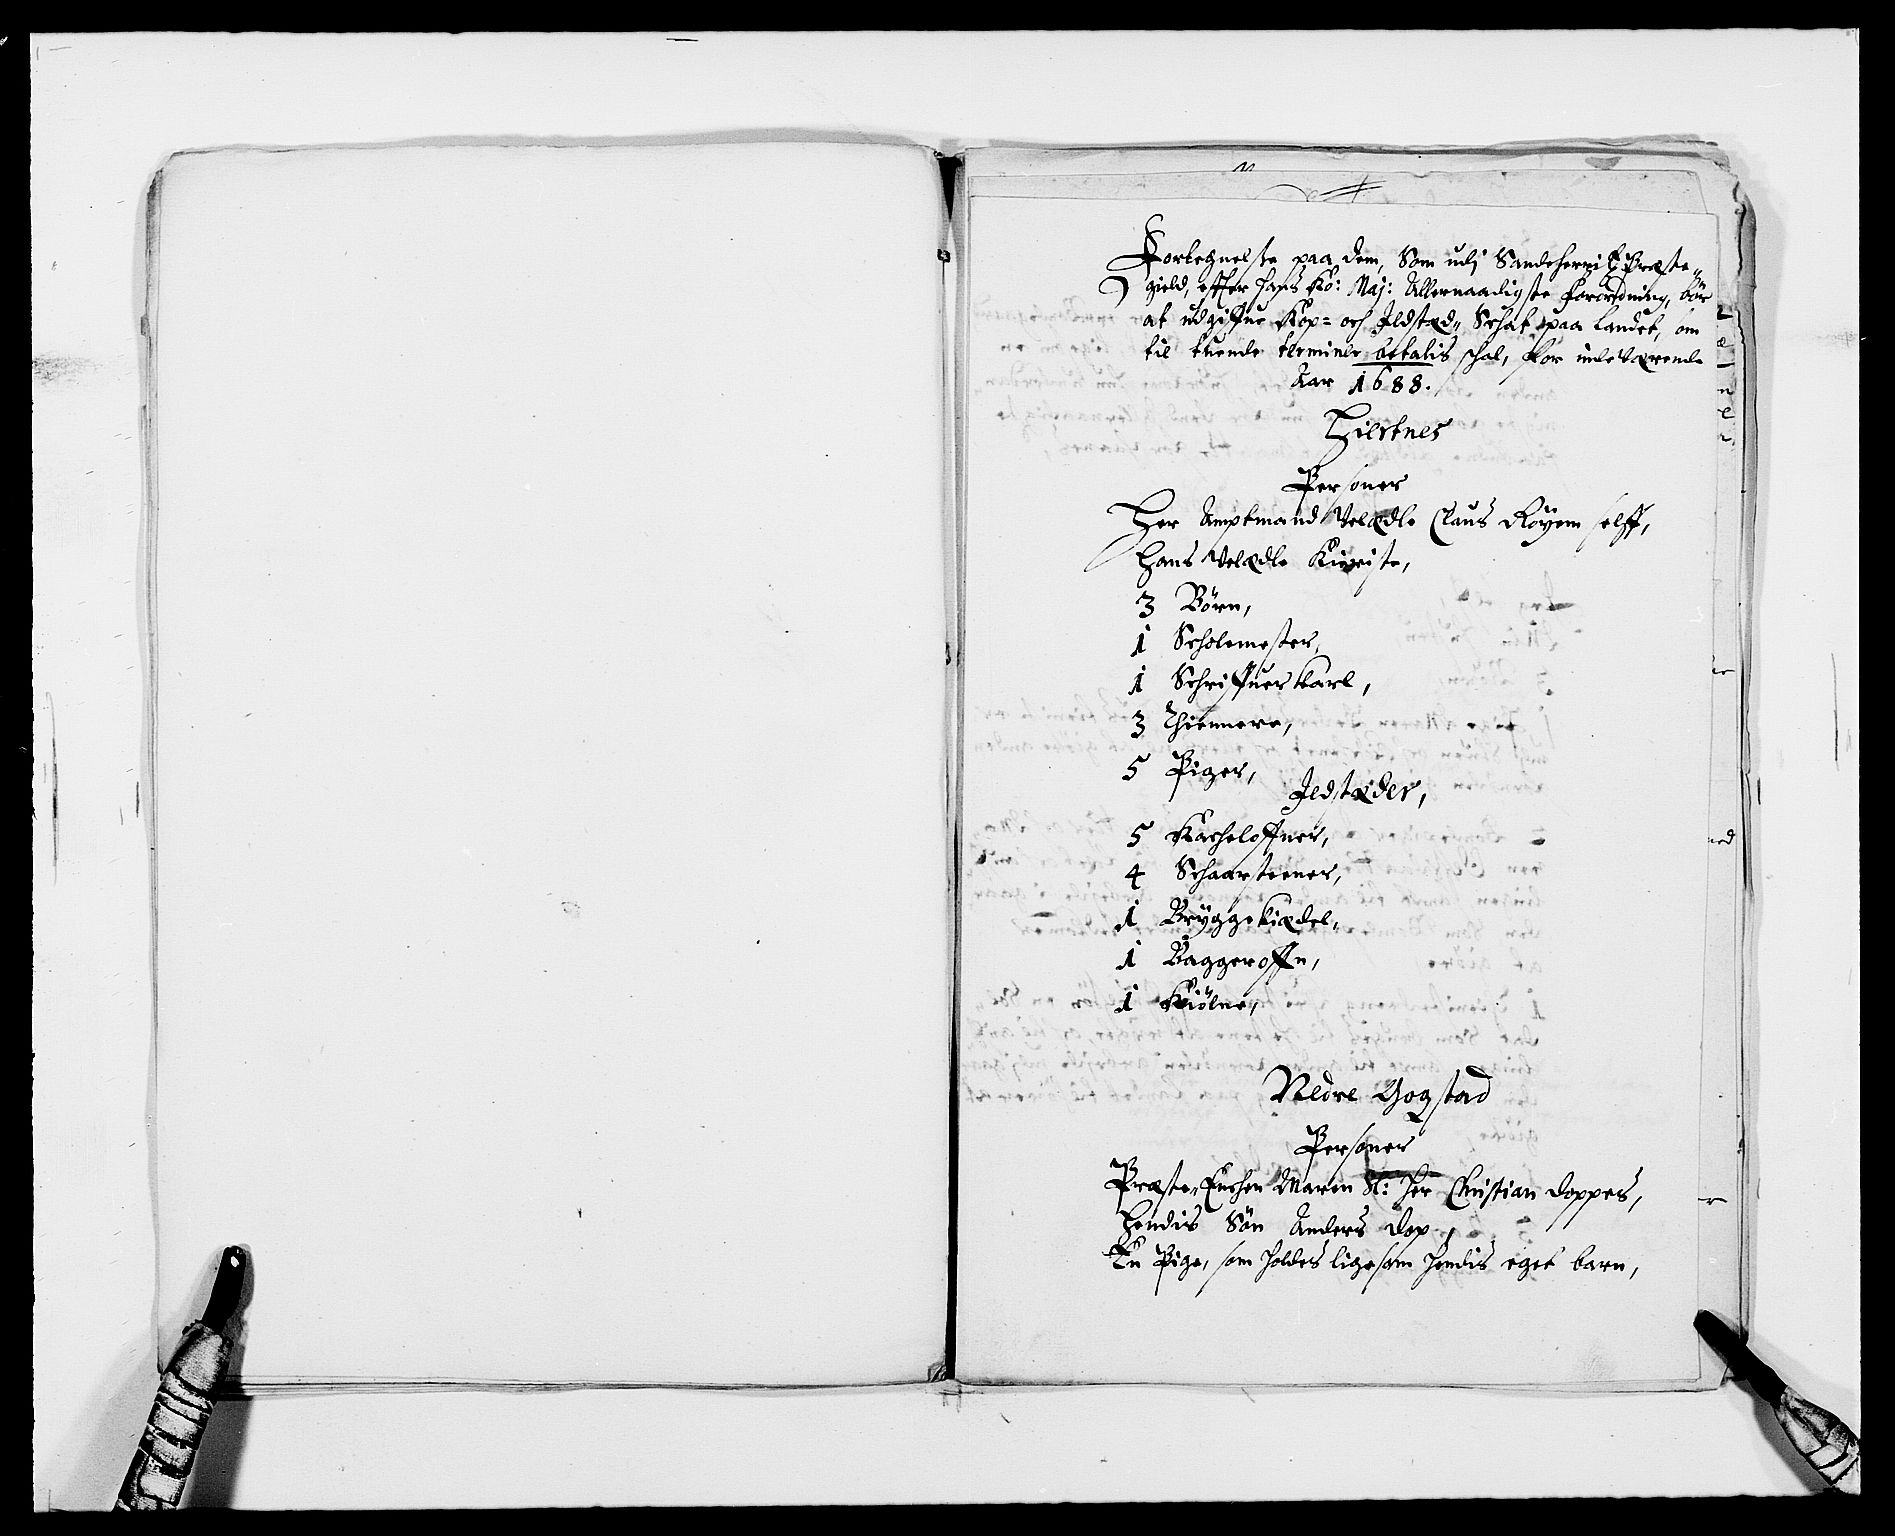 Fortegnelse paa dem, Som udj Sandeherrit Præste„
gield, effter hans Ko: Maj: Allernaadigste forordning, bör
at udgiffue Kop= och Jldsted„ Schat paa Landet, om
til tuende terminer betalis schal, for indeværende
Aar 1688.
Hiertnes
Personer
Her Amptmand Velædle Claus Röyem selff,
Hans Velædle Kieriste,
3 Börn,
1 Scholemester,
1 Schriffuerkarl,
3 Thiennere,
5 Piger,
Jldstæder,
5 Kacheloffner,
4 Schaarsteener,
1 Bryggekiædel,
1 Baggeroffn,
1 Kiölne,
Nedre Gogstad
Personer
Præste„ Enchen Maren Sl: Her Christian Doppes,
Hendis Sön Anders Dop,
En Pige, som holdes ligesom hendis eget barn,